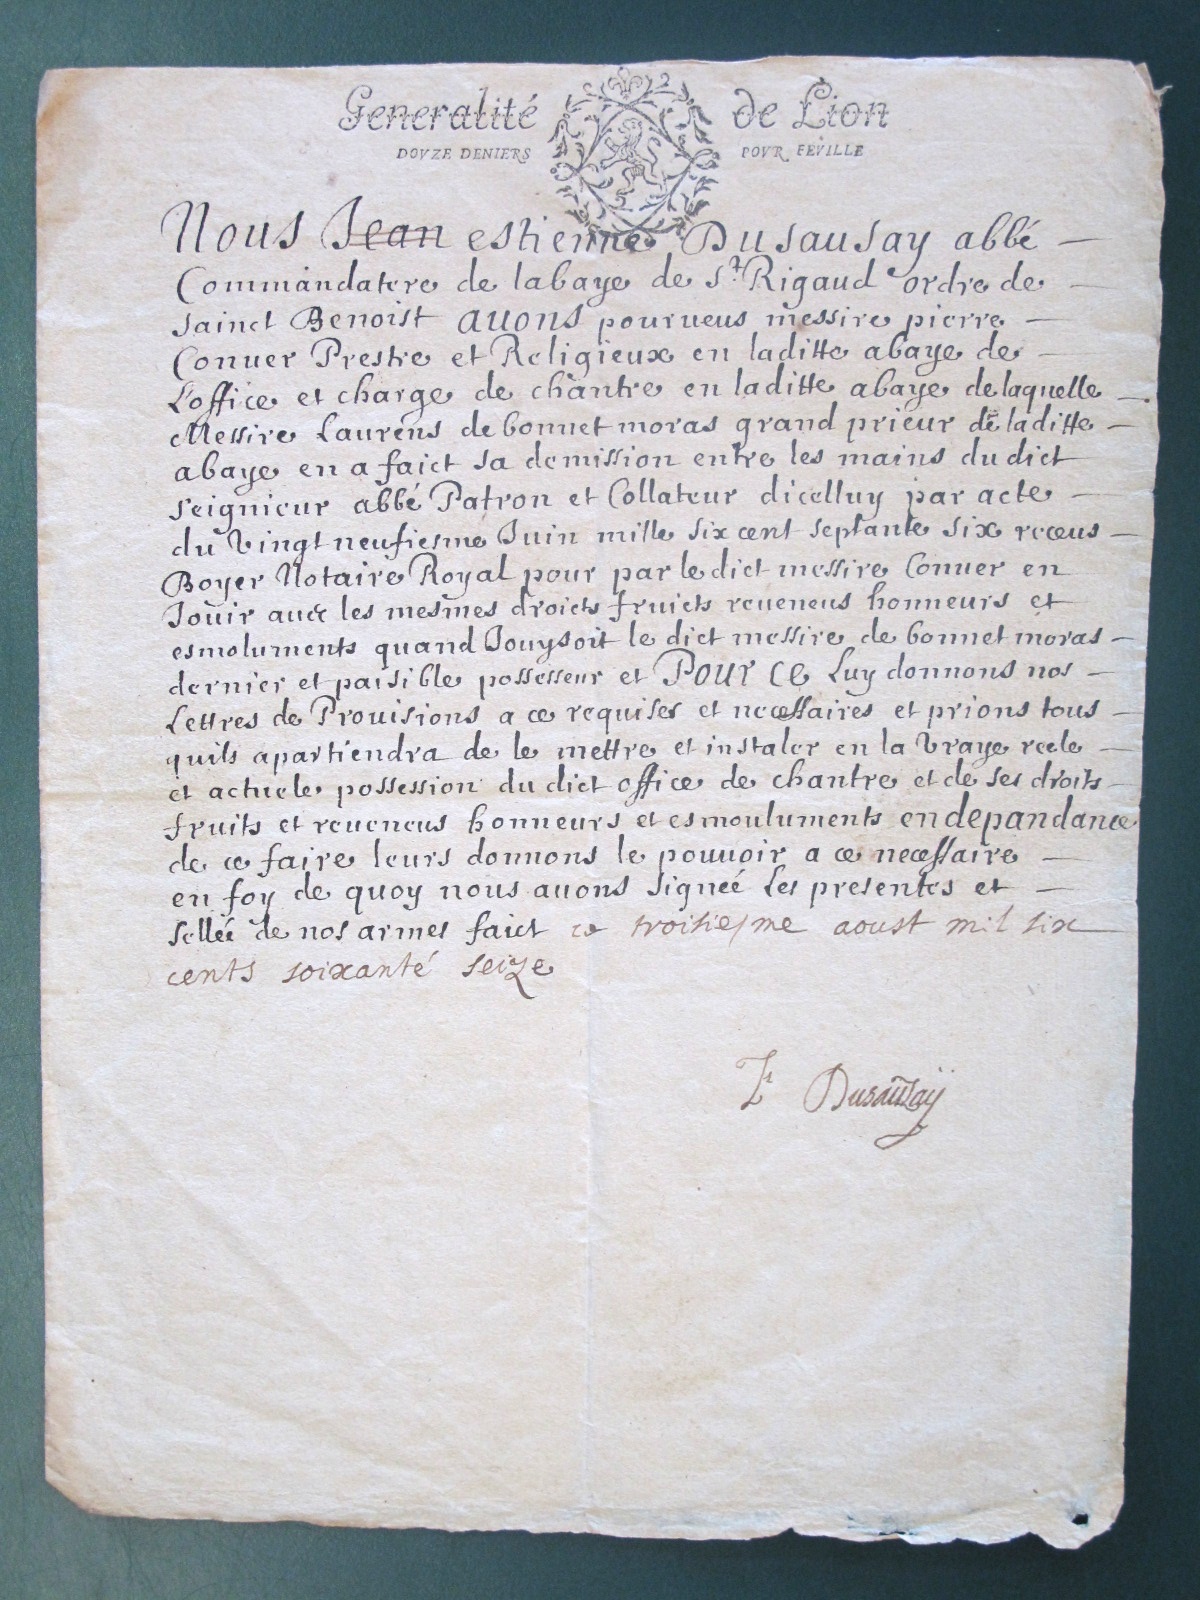 Generalité de Lion
DOVZE DENIERS POVR FEVILLE
Nous Jean estienne Dusausay abbé
Commandatere de labaye de St. Rigaud ordre de
sainct Benoist auons pourueus messire pierre
Conuer Prestre et Religieux en laditte abaye de
L'office et charge de chantre en laditte abaye de laquelle
Messire Laurens de bonnet moras grand prieur de laditte
abaye en a faict sa demission entre les mains du dict
seignieur abbé Patron et Collateur dicelluy par acte
du vingt neufiesme Juin mille six cent septante six receus
Boyer Notaire Royal pour par le dict messire Conuer en
Jouir auec les mesmes droicts fruicts reueneus honneurs et
esmoluments quand Jouysoit le dict messire de bonnet moras
dernier et paisible possesseur et Pour ce Luy donnons nos
Lettres de Prouisions a ce requises et necessaires et prions tous
quils apartiendra de le mettre et instaler en la vraye reele
et actuele possession du dict office de chantre et de ses droits
fruits et reueneus honneurs et esmouluments en depandance
de ce faire leurs donnons le pouuoir a ce necessaire
en foy de quoy nous auons signeé Les presentes et
selleé de nos armes faict ce troisiesme aoust mil six
cents soixanté seize
Dusausaÿ